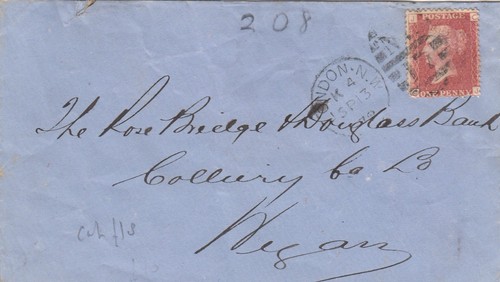 208
POSTAGE
ONE PENNY
LONDON·N.W
K 4
SP 3
The Rose Bridge & Douglass Bank
Colliery Co Ld
Wigan